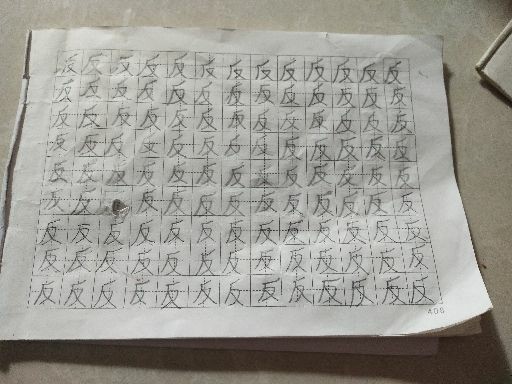 反反反反反反反反反反反反反
反反反反反反反反反反反反反
反反反反反反反反反反反反反
反反反反反反反反反反反反反
反反反反反反反反反反反反反
反反反反反反反反反反反反
反反反反反反反反反反反反反
反反反反反反反反反反反反反
反反反反反反反反反反反反反